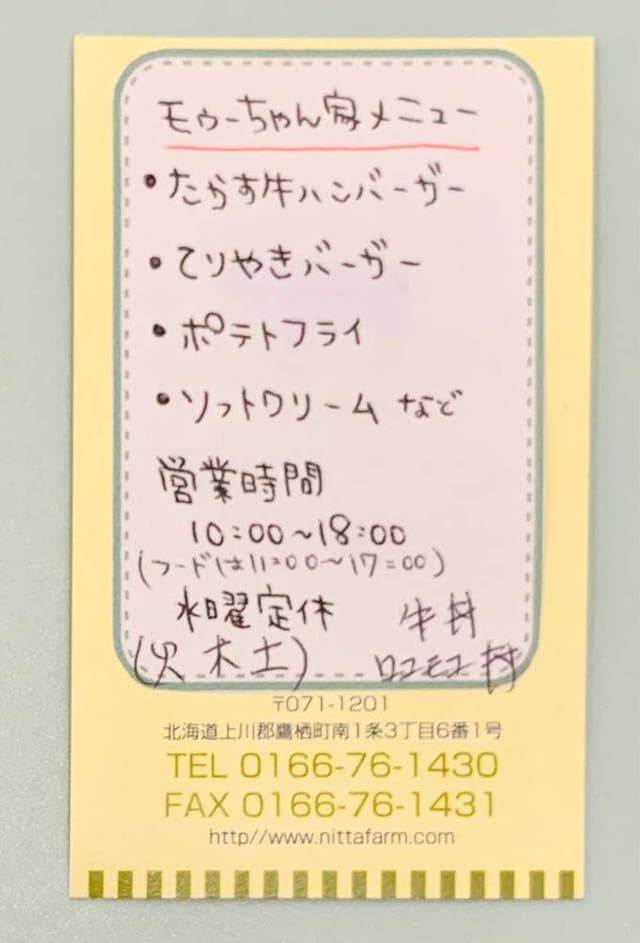 モゥーちゃん家メニュー
・たかす牛ハンバーガー
・てりやきバーガー
・ポテトフライ
・ソフトクリーム など
営業時間
10:00〜18:00
(フードは11:00〜17:00)
水曜定休 牛丼
(火 木 土) ロコモコ丼
〒071-1201
北海道上川郡鷹栖町南1条3丁目6番1号
TEL 0166-76-1430
FAX 0166-76-1431
http//www.nittafarm.com